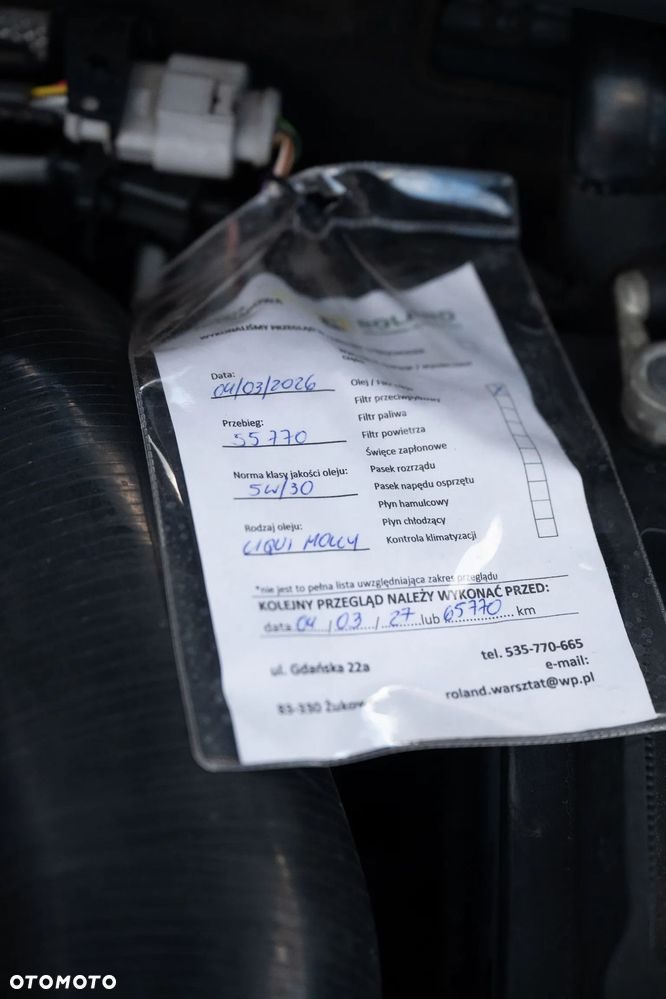 WYKONALIŚMY PRZEGLĄD
Data: 04/03/2026
Przebieg: 55 770
Norma klasy jakości oleju: 5W/30
Rodzaj oleju: LIQUI MOLLY
Olej /
Filtr przeciwpyłkowy
Filtr paliwa
Filtr powietrza
Świece zapłonowe
Pasek rozrządu
Pasek napędu osprzętu
Płyn hamulcowy
Płyn chłodzący
Kontrola klimatyzacji
*nie jest to pełna lista uwzględniająca zakres przeglądu
KOLEJNY PRZEGLĄD NALEŻY WYKONAĆ PRZED:
data 04 / 03 / 27 lub 65770 km
ul. Gdańska 22a
83-330 Żukow
tel. 535-770-665
e-mail:
roland.warsztat@wp.pl
OTOMOTO